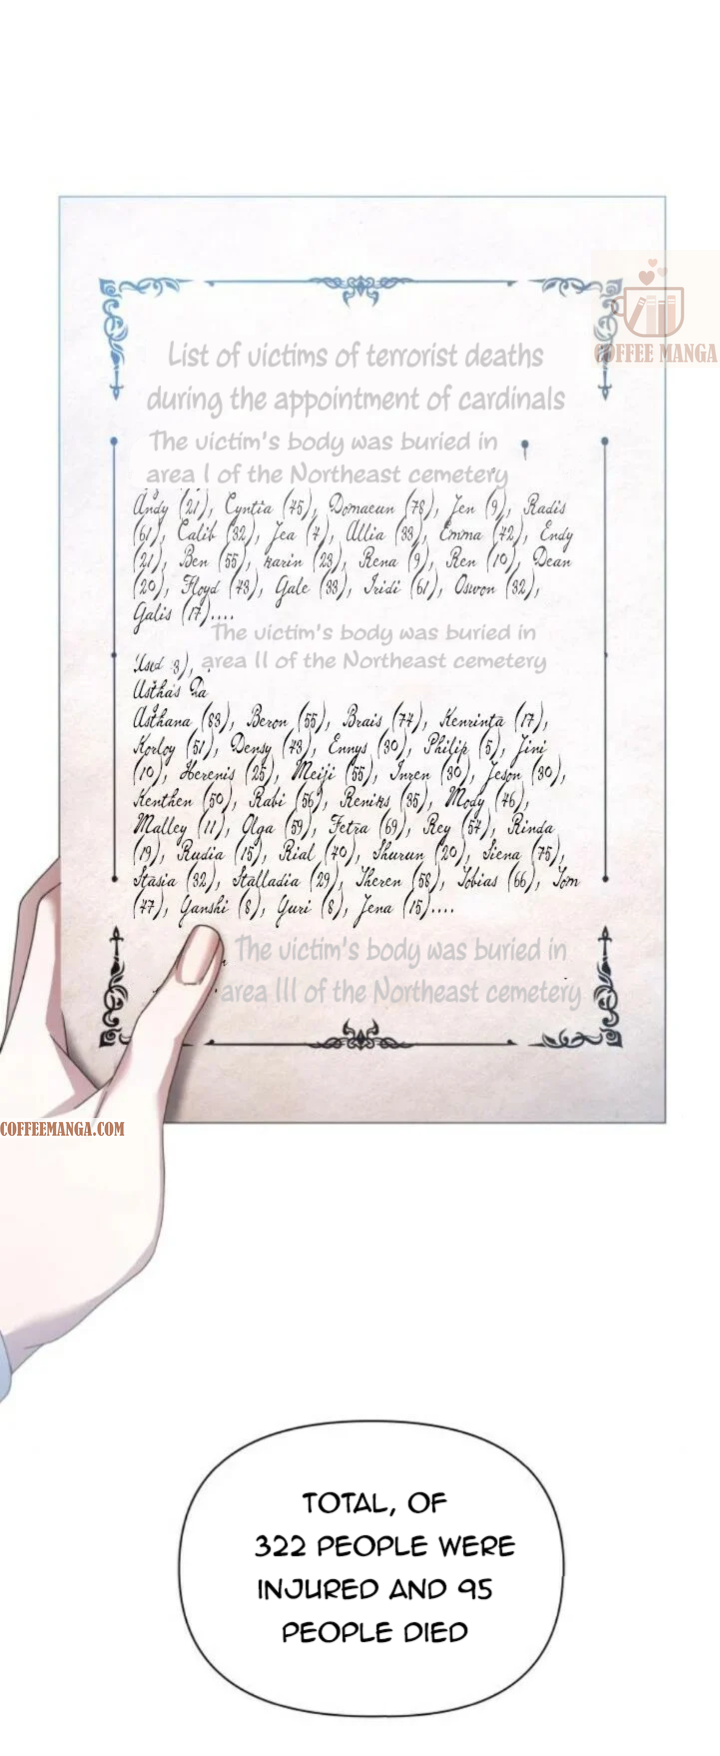 COFFEE MANGA
List of victims of terrorist deaths
during the appointment of cardinals
The victim's body was buried in
area I of the Northeast cemetery
Andy (21), Cyntia (75), Domaeun (78), Jen (9), Radis
(61), Calib (32), Jea (7), Allia (33), Emma (72), Endy
(21), Ben (55), karin (23), Rena (9), Ren (10), Dean
(20), Floyd (73), Gale (38), Iridi (61), Oswon (32),
Galis (17)....
The victim's body was buried in
area II of the Northeast cemetery
Asthana (83), Beron (55), Brais (77), Kenrinta (17),
Korloy (51), Densy (73), Ennys (30), Philip (5), Jini
(10), Herenis (25), Meiji (55), Inren (30), Jeson (30),
Kenthen (50), Rabi (56), Reniks (35), Mody (46),
Malley (11), Olga (59), Fetra (69), Rey (57), Rinda
(19), Rudia (15), Rial (70), Shurun (20), Siena (75),
Stasia (32), Stalladia (29), Theren (58), Tobias (66), Tom
(77), Yanshi (8), Yuri (8), Jena (15)....
The victim's body was buried in
area III of the Northeast cemetery
COFFEEMANGA.COM
TOTAL, OF
322 PEOPLE WERE
INJURED AND 95
PEOPLE DIED